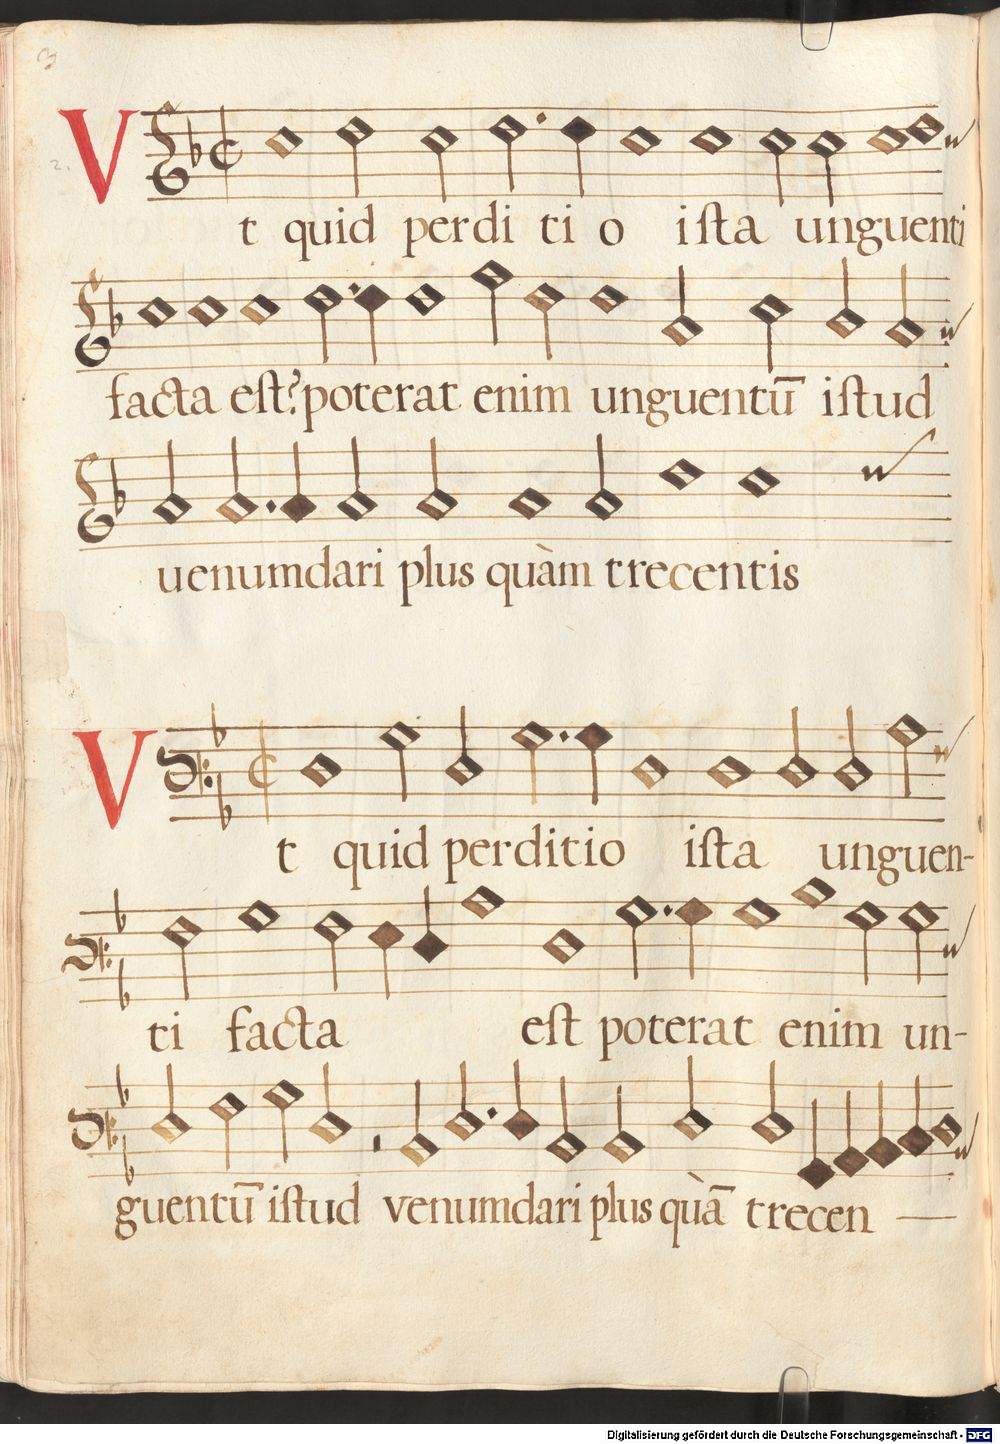 3
2.
Vt quid perdi ti o iſta unguenti
facta eſt? poterat enim unguentū iſtud
uenumdari plus quàm trecentis
Vt quid perditio iſta unguen-
ti facta eſt poterat enim un-
guentū iſtud venumdari plus quà̄ trecen —
Digitalisierung gefördert durch die Deutsche Forschungsgemeinschaft - DFG